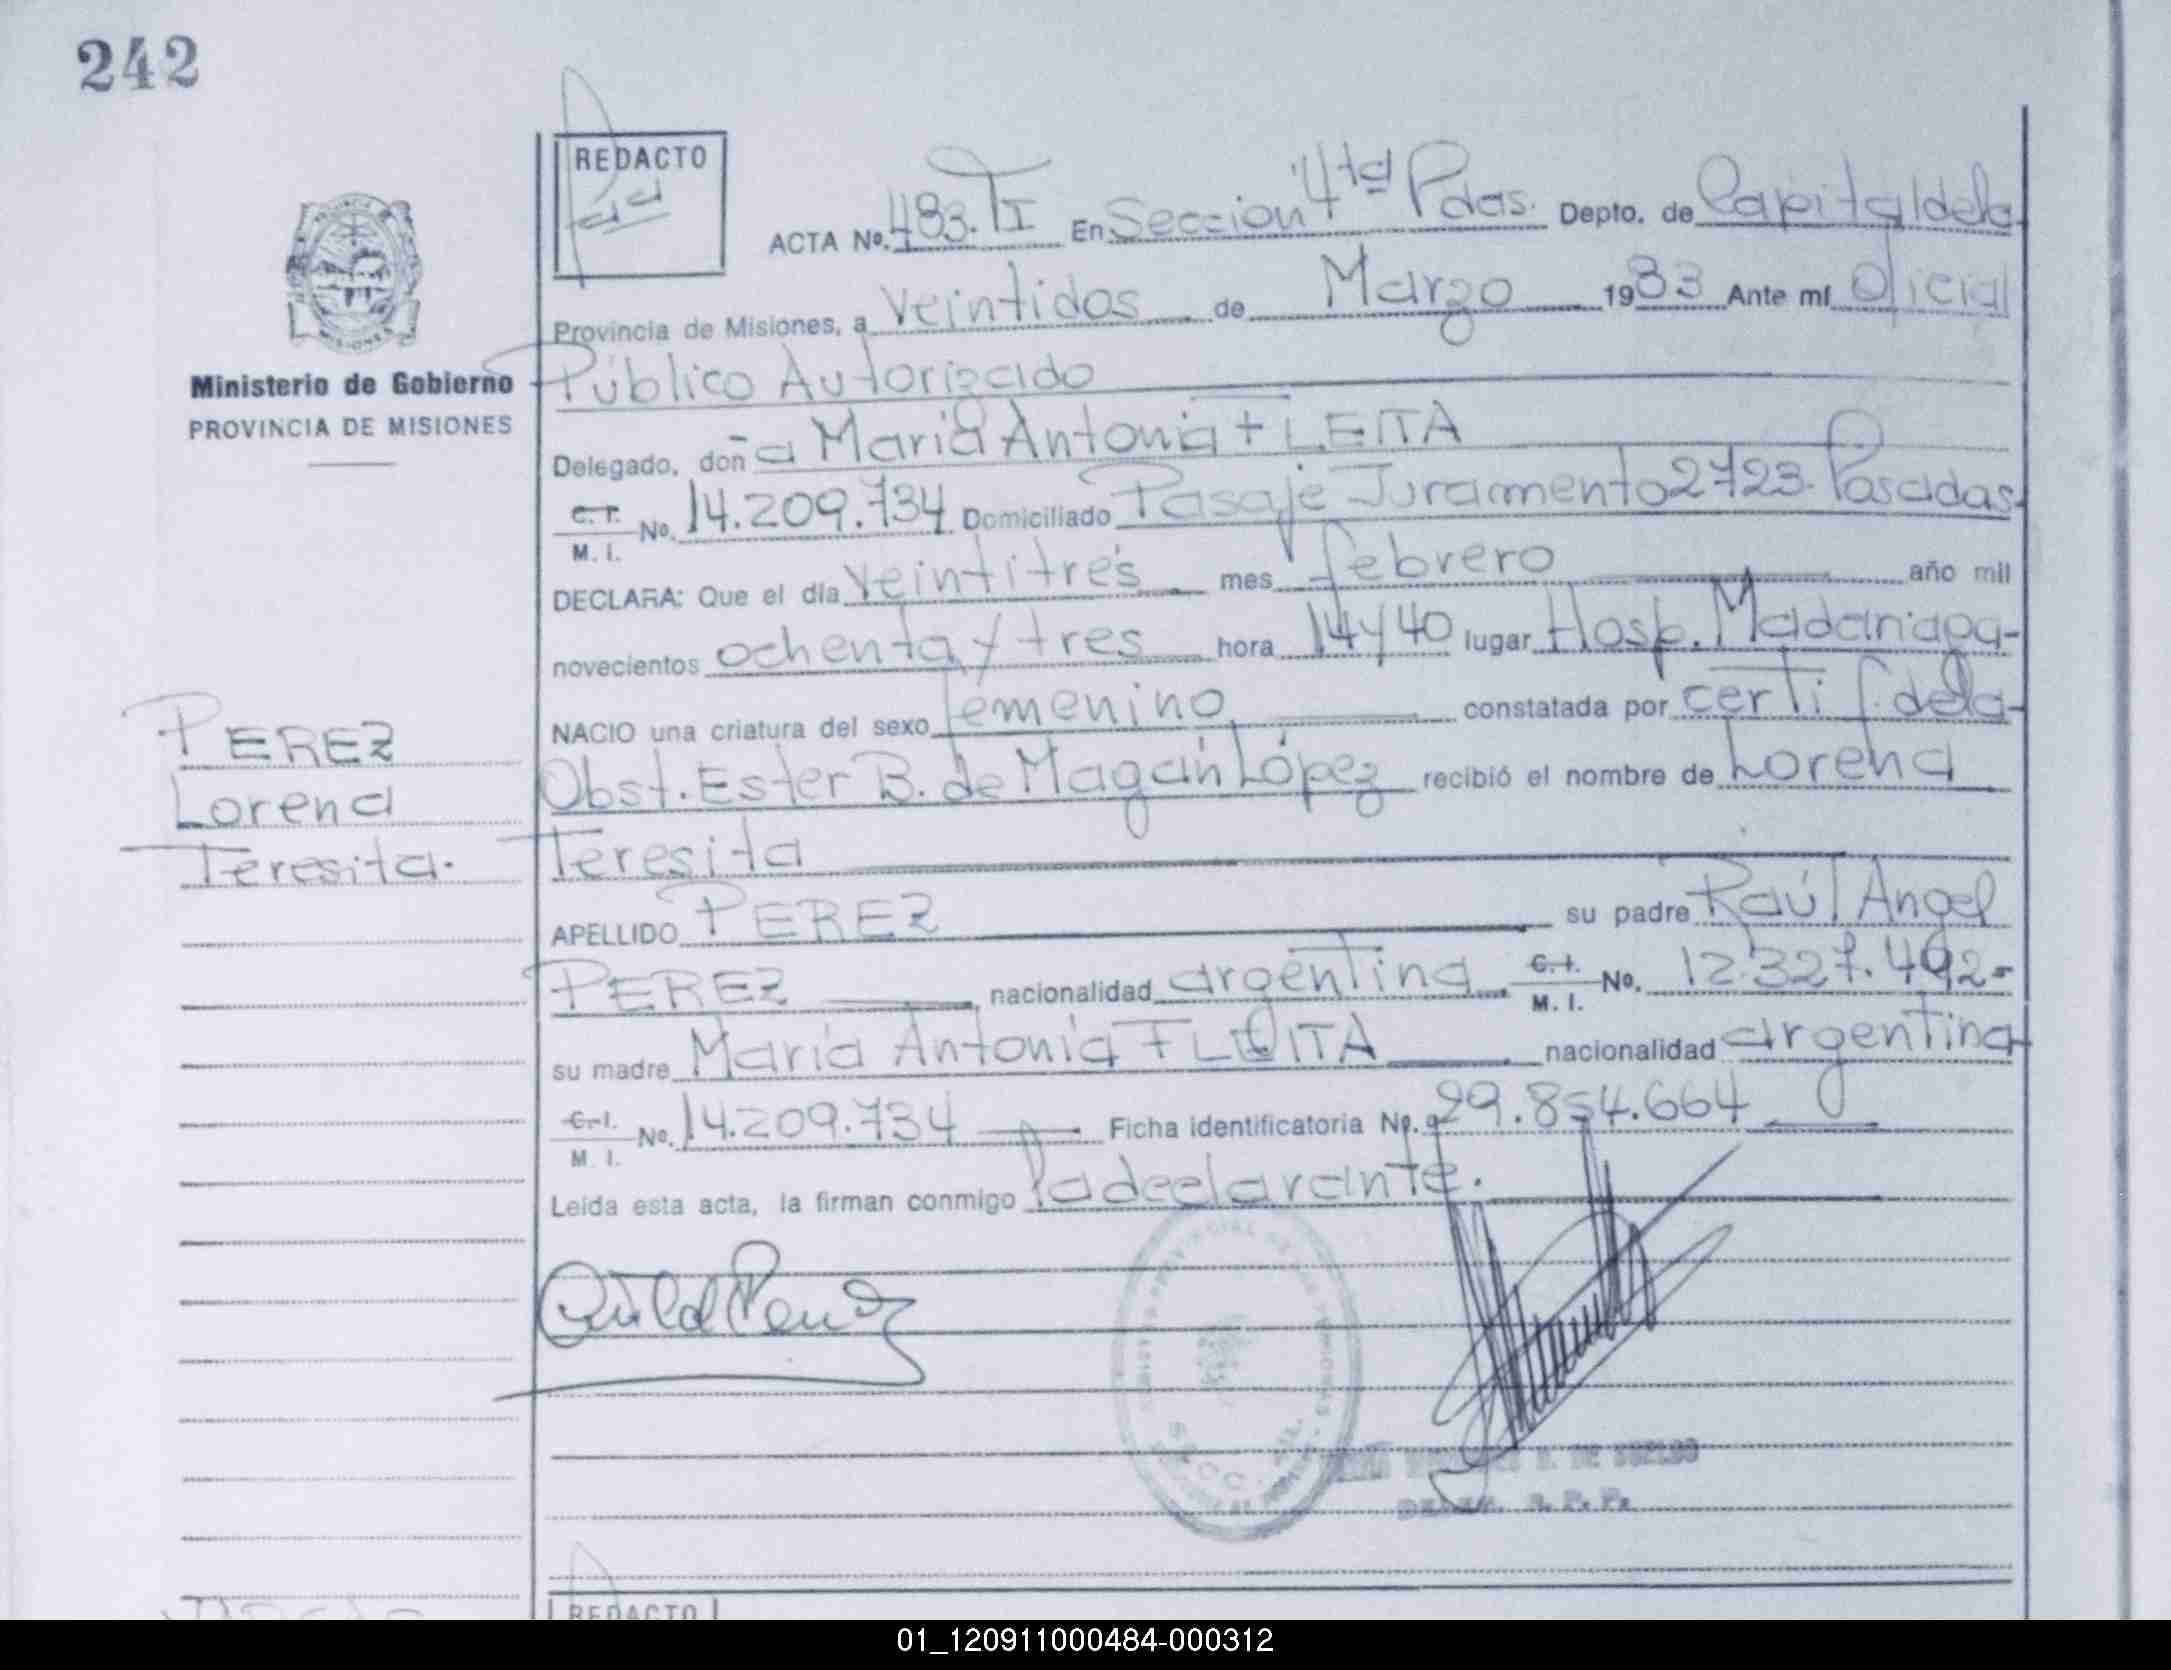 242
REDACTO
ACTA No. 483. TI En Sección 4ta Pdas. Depto. de Capital de la
Provincia de Misiones, a veintidos de Marzo 1983 Ante mí Oficial
Público Autorizado
Ministerio de Gobierno
PROVINCIA DE MISIONES
Delegado, doña María Antonia FLEITA
C. I. M. I. No. 14.209.734 Domiciliado Pasaje Juramento 2723. Posadas
DECLARA: Que el día veintitrés mes febrero año mil
novecientos ochenta y tres hora 14y40 lugar Hosp. Madariaga
NACIO una criatura del sexo femenino constatada por certif. de la
Obst. Ester B. de Magán López recibió el nombre de Lorena
Teresita
PEREZ
Lorena
Teresita.
APELLIDO PEREZ su padre Raúl Angel
PEREZ nacionalidad argentina C. I. M. I. No. 12.327.492-
su madre María Antonia FLEITA nacionalidad argentina
C. I. M. I. No. 14.209.734 Ficha identificatoria No. 29.854.664
Leída esta acta, la firman conmigo la declarante.
DE
REDACTO
01_120911000484-000312